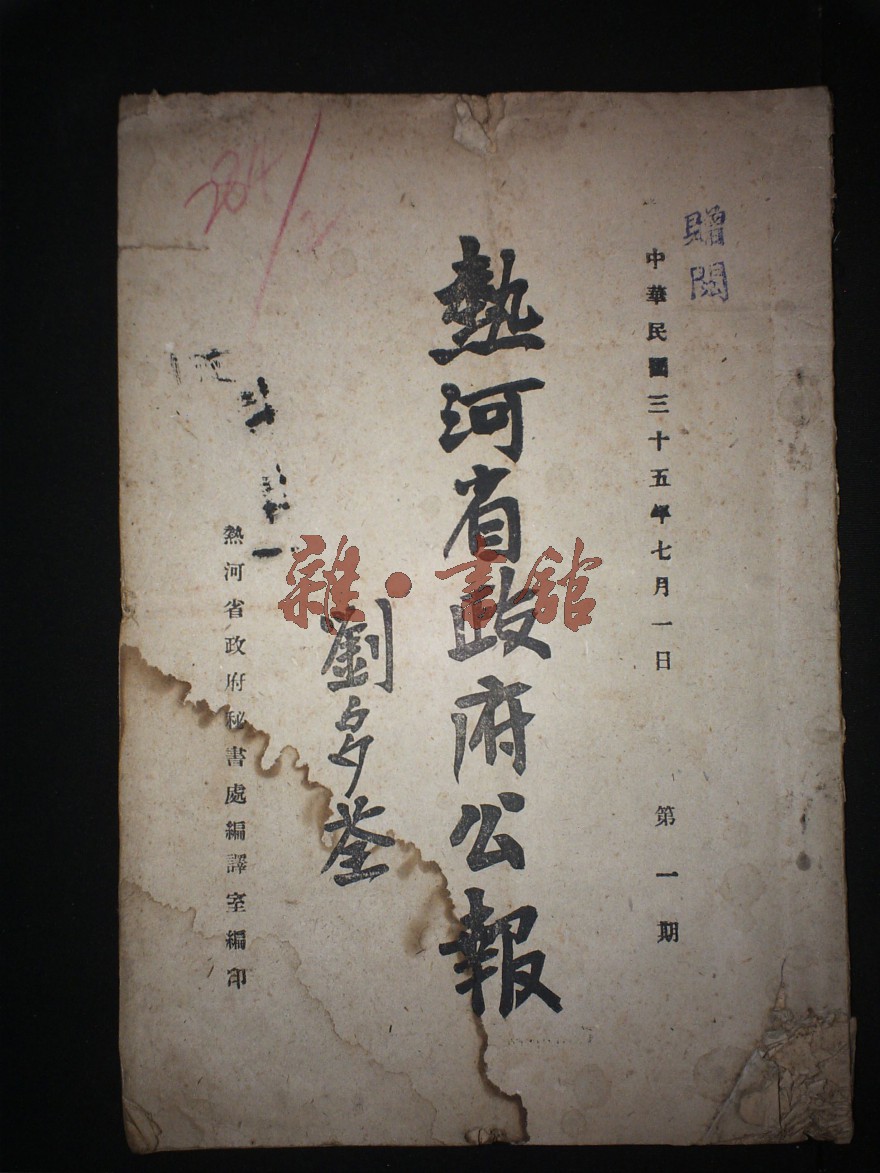 贈閱
中華民國三十五年七月一日 第一期
熱河省政府公報
劉多荃
熱河省政府秘書處編譯室編印
雜·書館